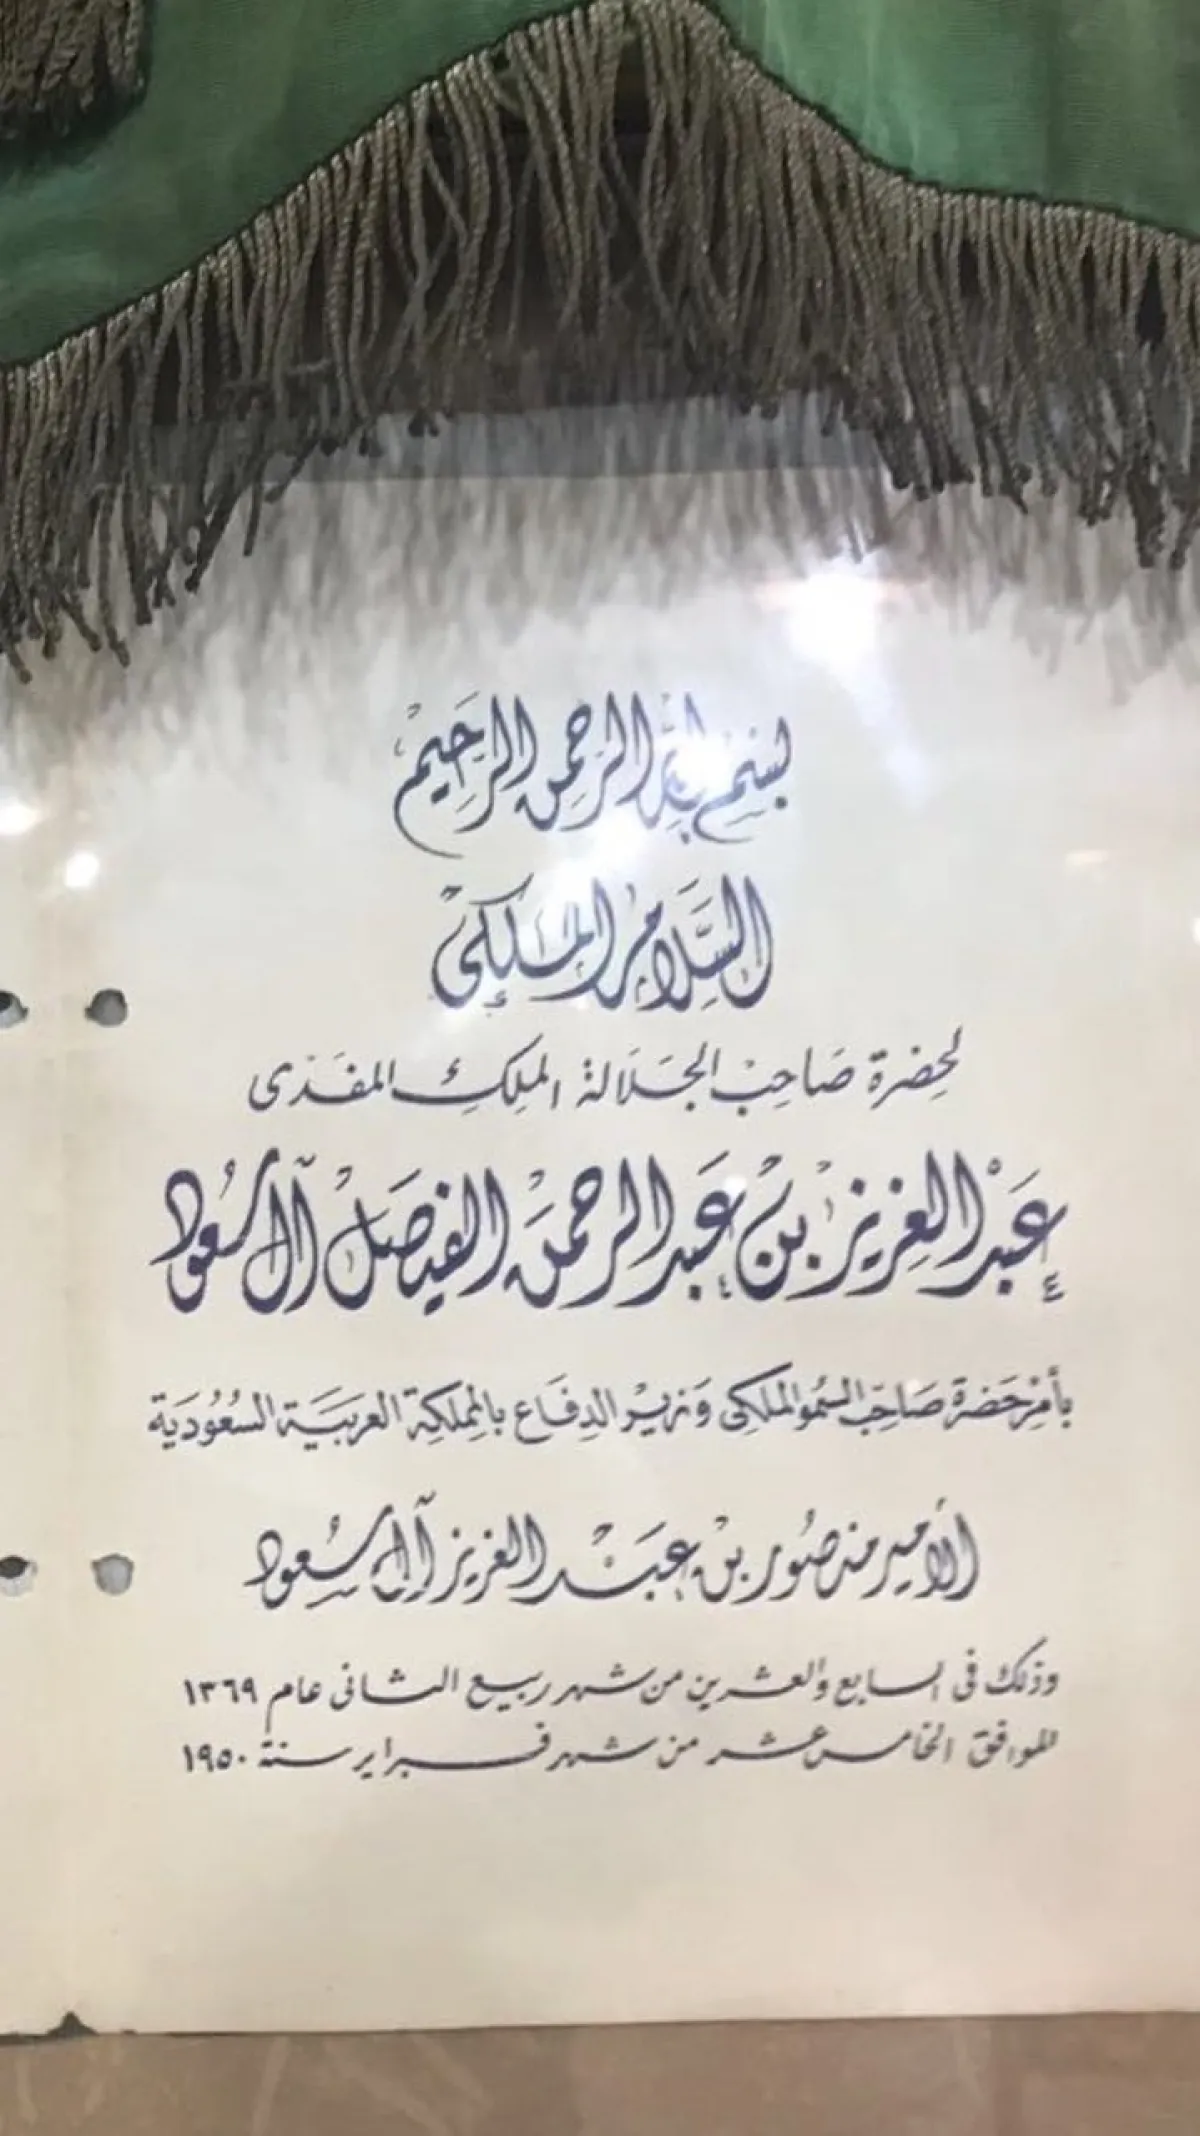 بسم الله الرحمن الرحيم
السلام الملكي
لحضرة صاحب الجلالة الملك المفدى
عبد العزيز بن عبد الرحمن الفيصل آل سعود
بأمر حضرة صاحب السمو الملكي وزير الدفاع بالمملكة العربية السعودية
الأمير منصور بن عبد العزيز آل سعود
وذلك في السابع والعشرين من شهر ربيع الثاني عام ١٣٦٩
الموافق الخامس عشر من شهر فبراير سنة ١٩٥٠